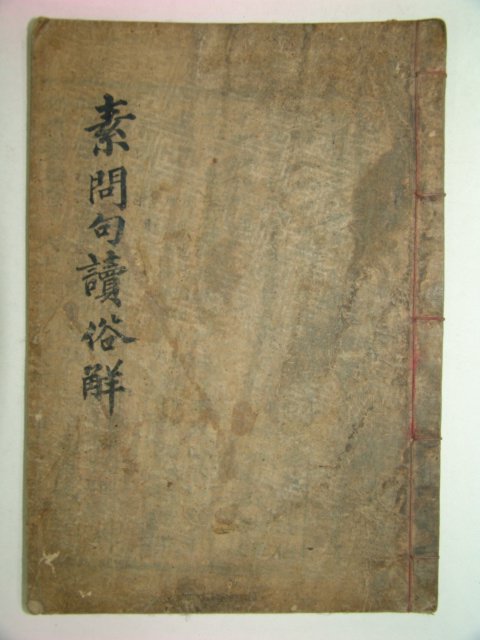 素問句讀俗觧